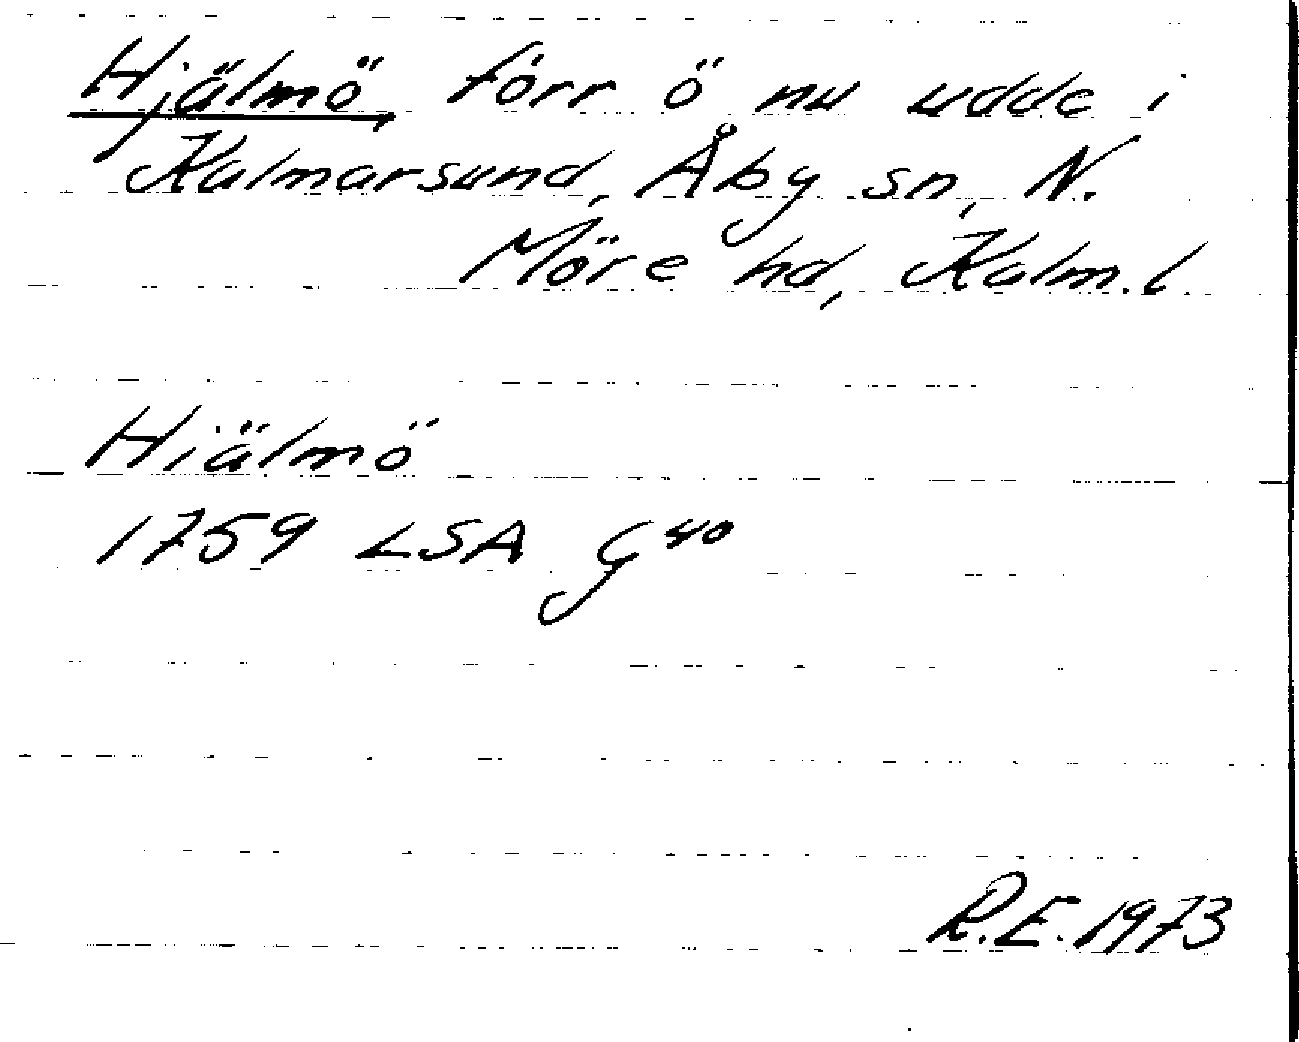 Hjälmö, förr ö nu udde i
Kalmarsund, Åby sn, N.
Möre hd, Kalm. l.
Hiälmö
1759 LSA G 40
R.E. 1973